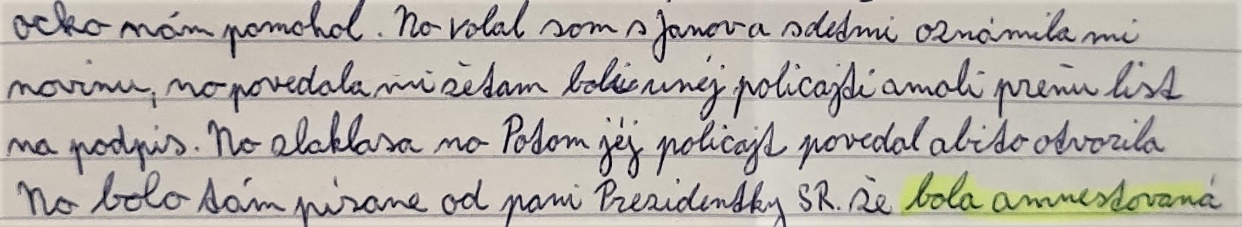 ocko nám pomohol. No volal som s Janov a sdeťmi oznámila mi
novinu, no povedala mi že tam boli unéj policajti amali preňu list
na podpis. No zlaklasa no Potom jéj policajt povedal abito otvorila
No bolo tám pisane od pani Prezidentky SR. že bola amnestovaná